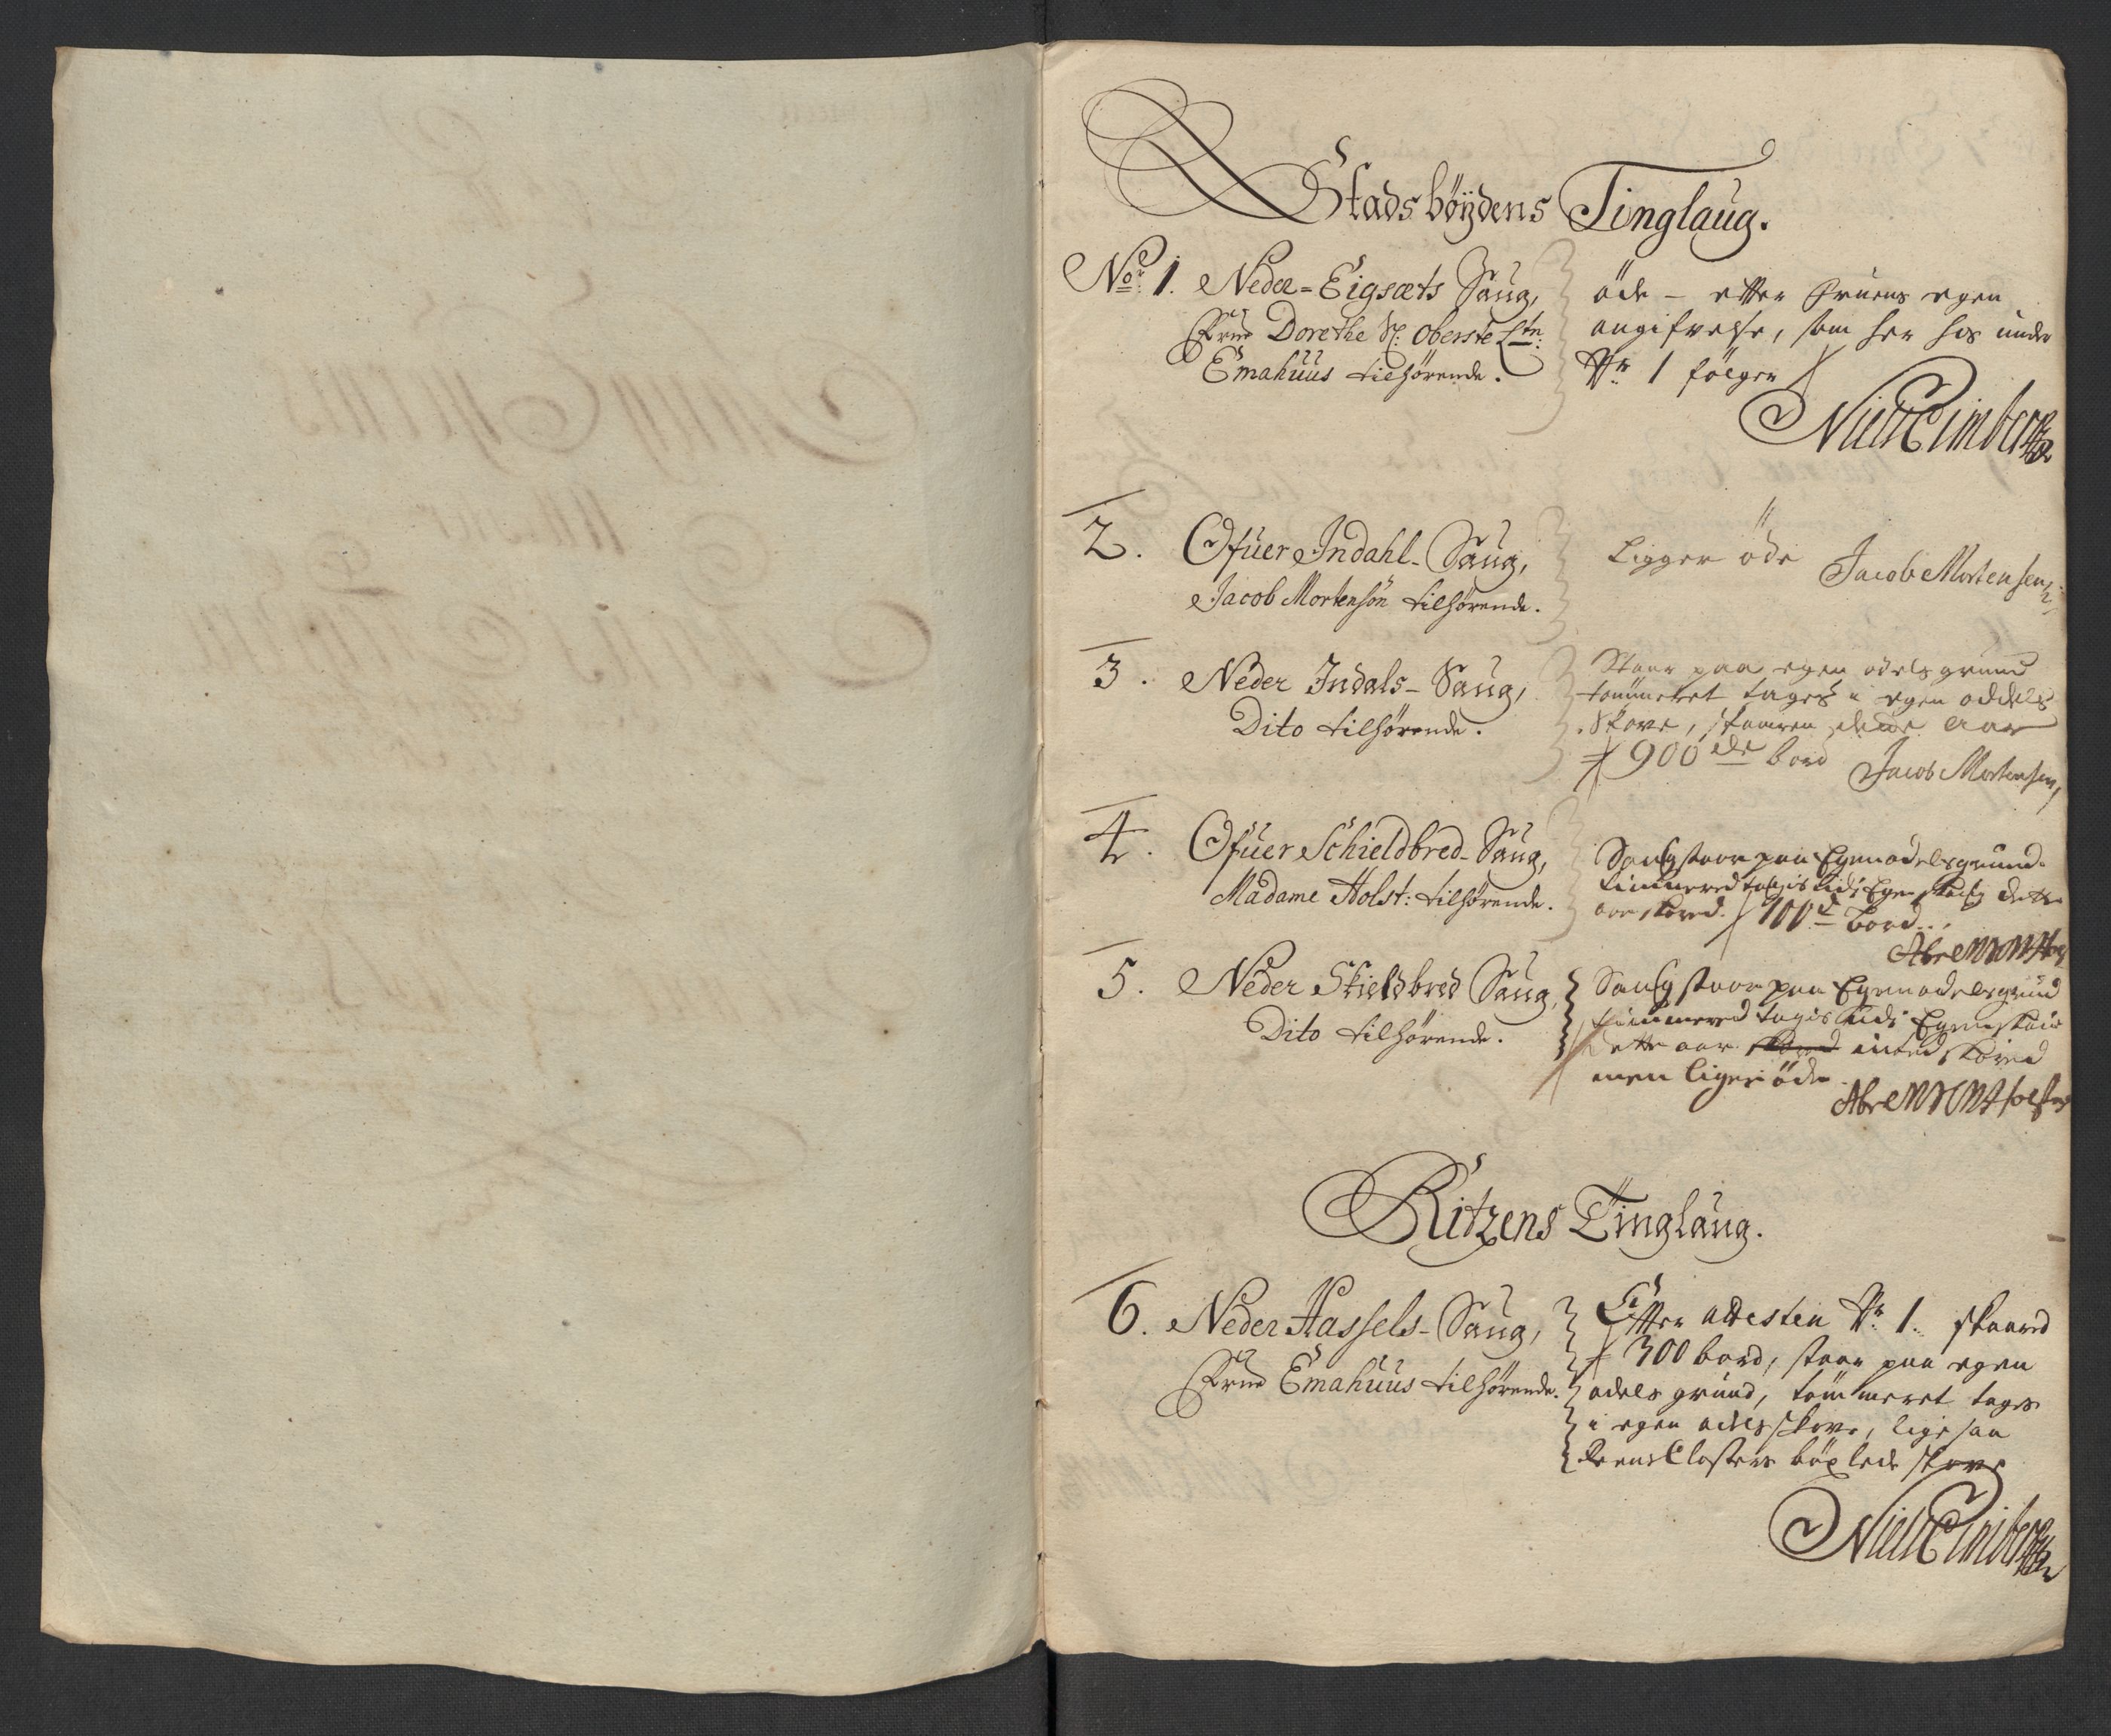 Stadsböÿdens Tinglaug.
No. 1. Neder=Eigsæts Saug,
Frue Dorethe Sl: Oberste Ltn:
Emahuus tilhörende.
öde - efter Fruens egen
angifvelse, som her hos under
Nr. 1 fölger
2. Ofuer Indahl-Saug,
Jacob Mortensön tilhörende.
Ligger öde Jacob Mortensen
3. Neder Indals-Saug,
Dito tilhörende.
Staar paa egen odelsgrund
tömmeret tages i egen oddels
Skove, skaaren dette aar
900de bord Jacob Mortensen
4. Ofuer Schieldbred-Saug,
Madame Holst: tilhörende.
Saugstaar paa Egenodelsgrund
timmered tagis udi Egen skoug dette
aar skored 100d bord
5. Neder Skieldbred Saug,
Dito tilhörende.
Saugstaar paa Egenodelsgrund
timmered tagis udi Egenskou
dette aar skored inted skored
men liger öde
Ritzens Tinglaug.
6. Neder Hassels-Saug,
Frue Emahuus tilhörende.
Efter attesten Nr. 1. skaared
300 bord, staar paa egen
odels grund, tömmeret tages
i egen odels skove, lige saa
Reens Closters böxlede skove